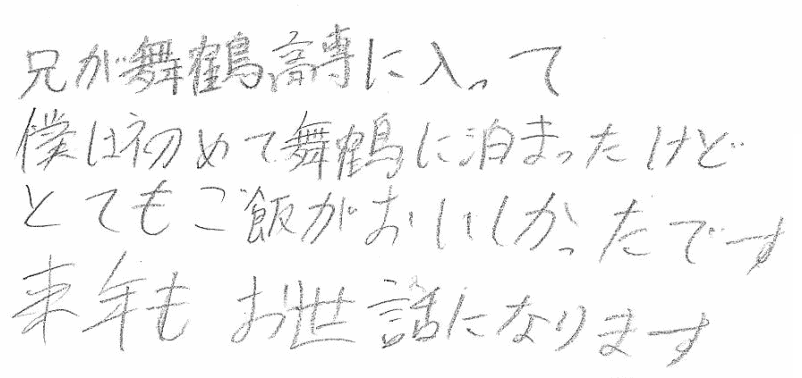 兄が舞鶴高専に入って
僕は初めて舞鶴に泊まったけど
とてもご飯がおいしかったです
来年もお世話になります